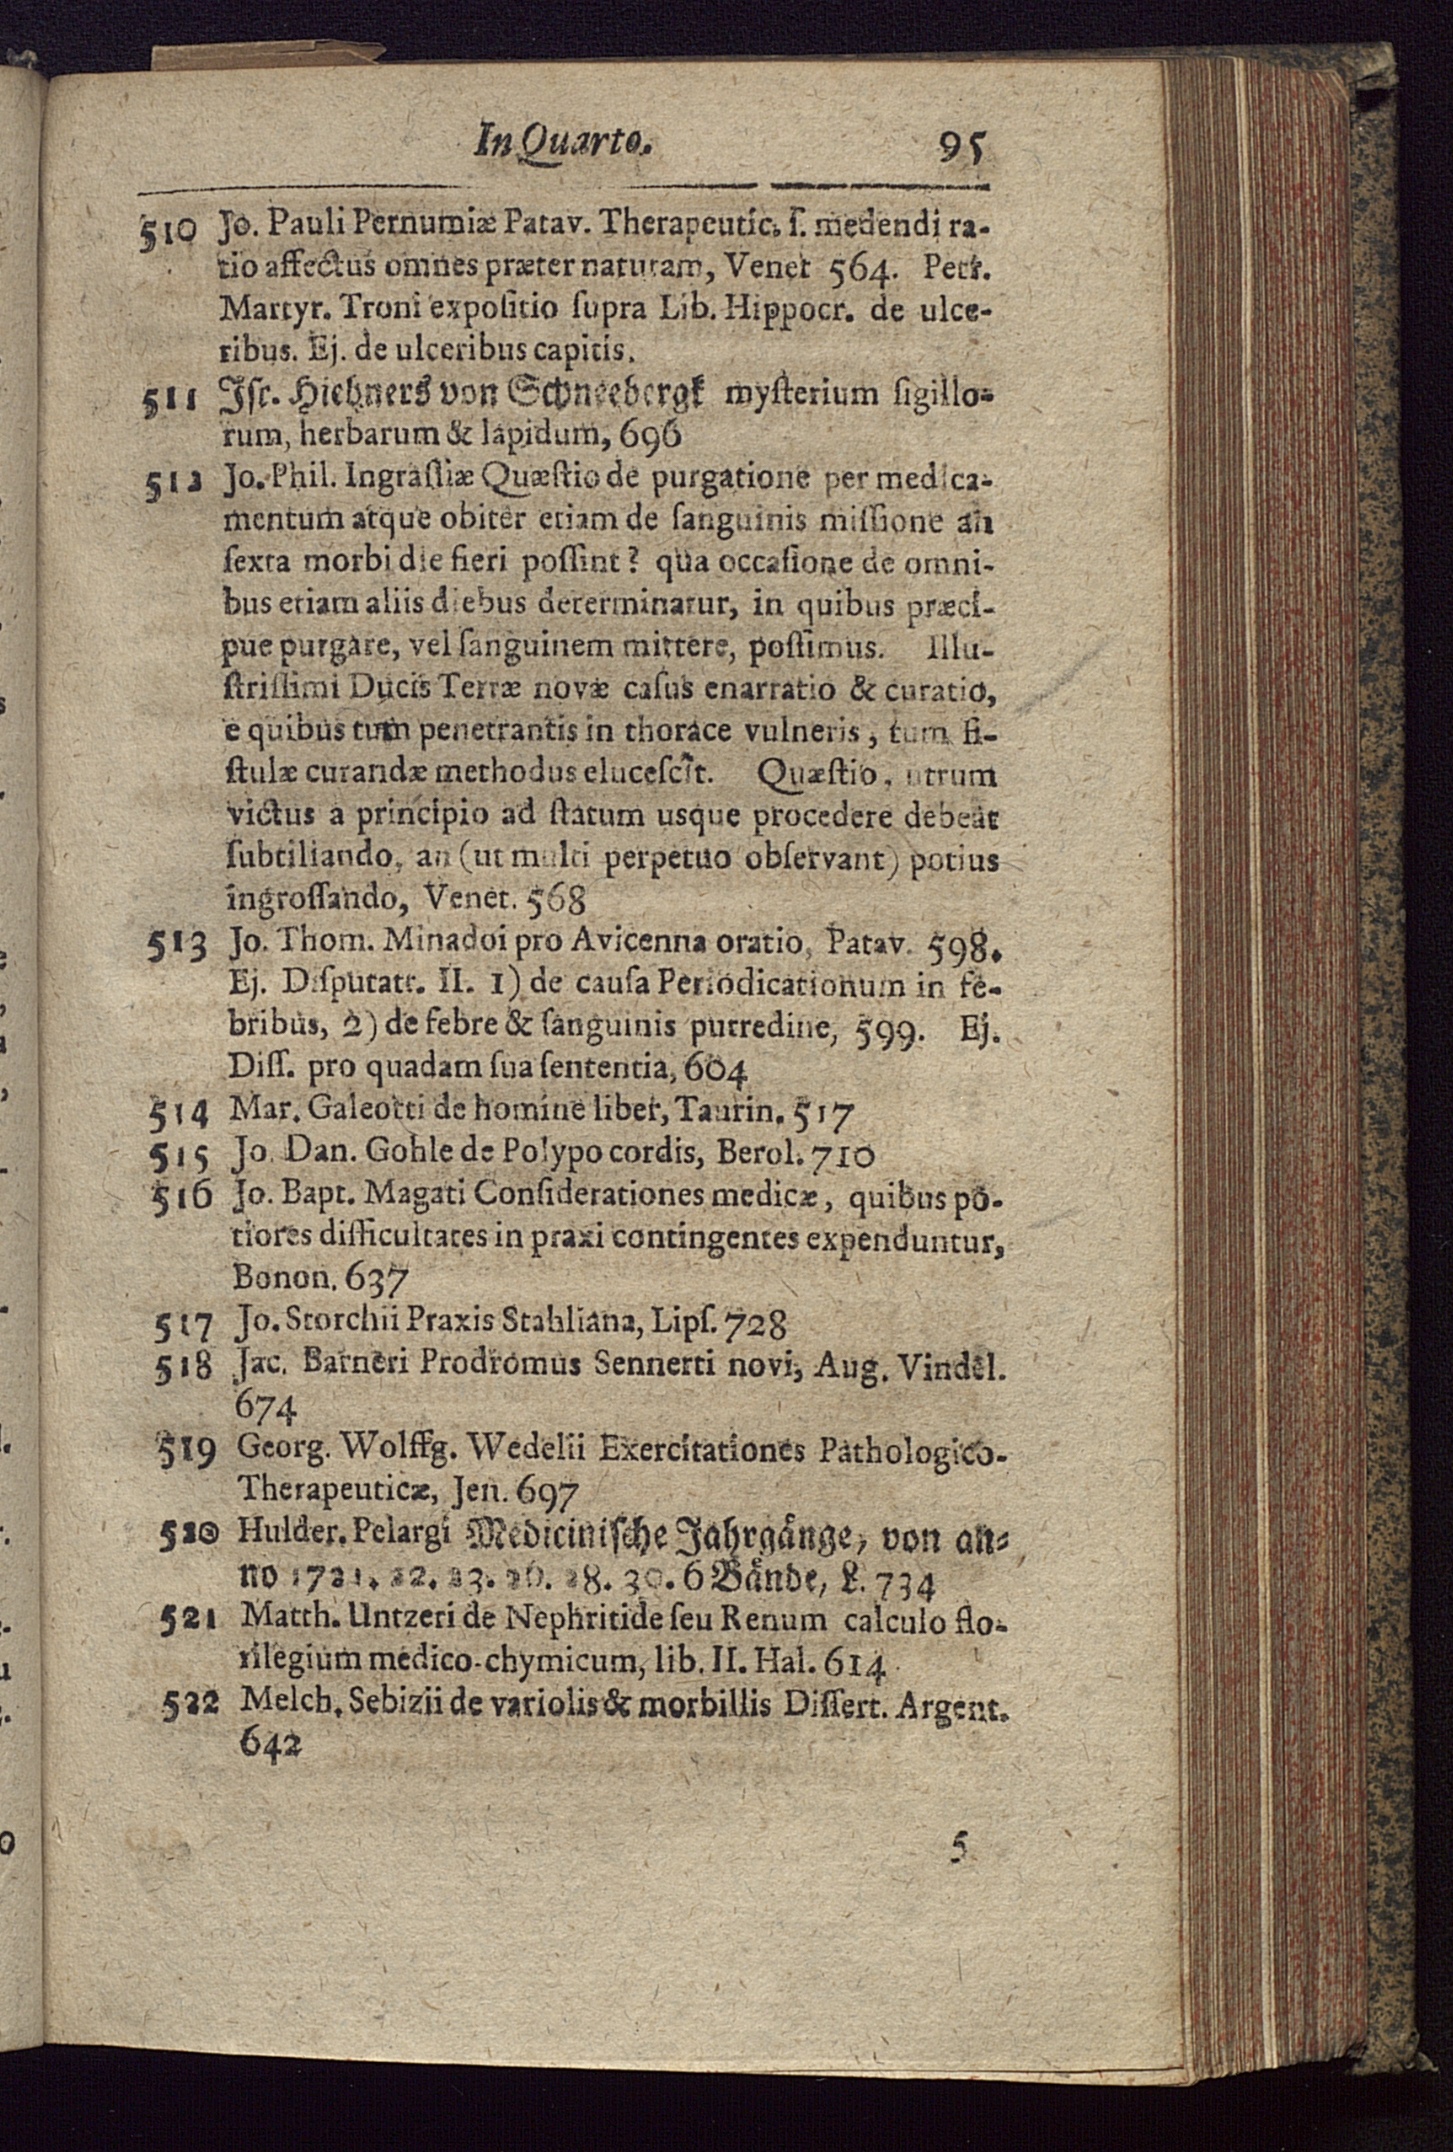 In Quarto. 95
510 Jo. Pauli Pernumiæ Patav. Therapeutic. ſ. medendi ra-
tio affectus omnes præter naturam, Venet 564. Petr.
Martyr. Troni expoſitio ſupra Lib. Hippocr. de ulce-
ribus. Ej. de ulceribus capitis.
511 Iſr. Hiebners von Schneebergk myſterium ſigillo-
rum, herbarum & lapidum, 696
512 Jo. Phil. Ingraſſiæ Quæſtio de purgatione per medica-
mentum atque obiter etiam de ſanguinis miſſione an
ſexta morbi die fieri poſſint? qua occaſione de omni-
bus etiam aliis diebus determinatur, in quibus præci-
pue purgare, vel ſanguinem mittere, poſſimus. Illu-
ſtriſſimi Ducis Terræ novæ caſus enarratio & curatio,
e quibus tum penetrantis in thorace vulneris, tum fi-
ſtulæ curandæ methodus eluceſcit. Quæſtio, utrum
victus a principio ad ſtatum usque procedere debeat
ſubtiliando, an (ut multi perpetuo obſervant) potius
ingroſſando, Venet. 568
513 Jo. Thom. Minadoi pro Avicenna oratio, Patav. 598.
Ej. Diſputatt. II. 1) de cauſa Periodicationum in fe-
bribus, 2) de febre & ſanguinis putredine, 599. Ej.
Diſſ. pro quadam ſua ſententia, 604
514 Mar. Galeotti de homine liber, Taurin. 517
515 Jo. Dan. Gohle de Polypo cordis, Berol. 710
516 Jo. Bapt. Magati Conſiderationes medicæ, quibus po-
tiores difficultates in praxi contingentes expenduntur,
Bonon. 637
517 Jo. Storchii Praxis Stahliana, Lipſ. 728
518 Jac. Barneri Prodromus Sennerti novi, Aug. Vindel.
674
519 Georg. Wolffg. Wedelii Exercitationes Pathologico-
Therapeuticæ, Jen. 697
520 Hulder. Pelargi Medicinische Jahrgänge, von an-
no 1721. 22. 23. 26. 28. 30. 6 Bände, L. 734
521 Matth. Untzeri de Nephritide ſeu Renum calculo flo-
rilegium medico-chymicum, lib. II. Hal. 614
522 Melch. Sebizii de variolis & morbillis Diſſert. Argent.
642
5